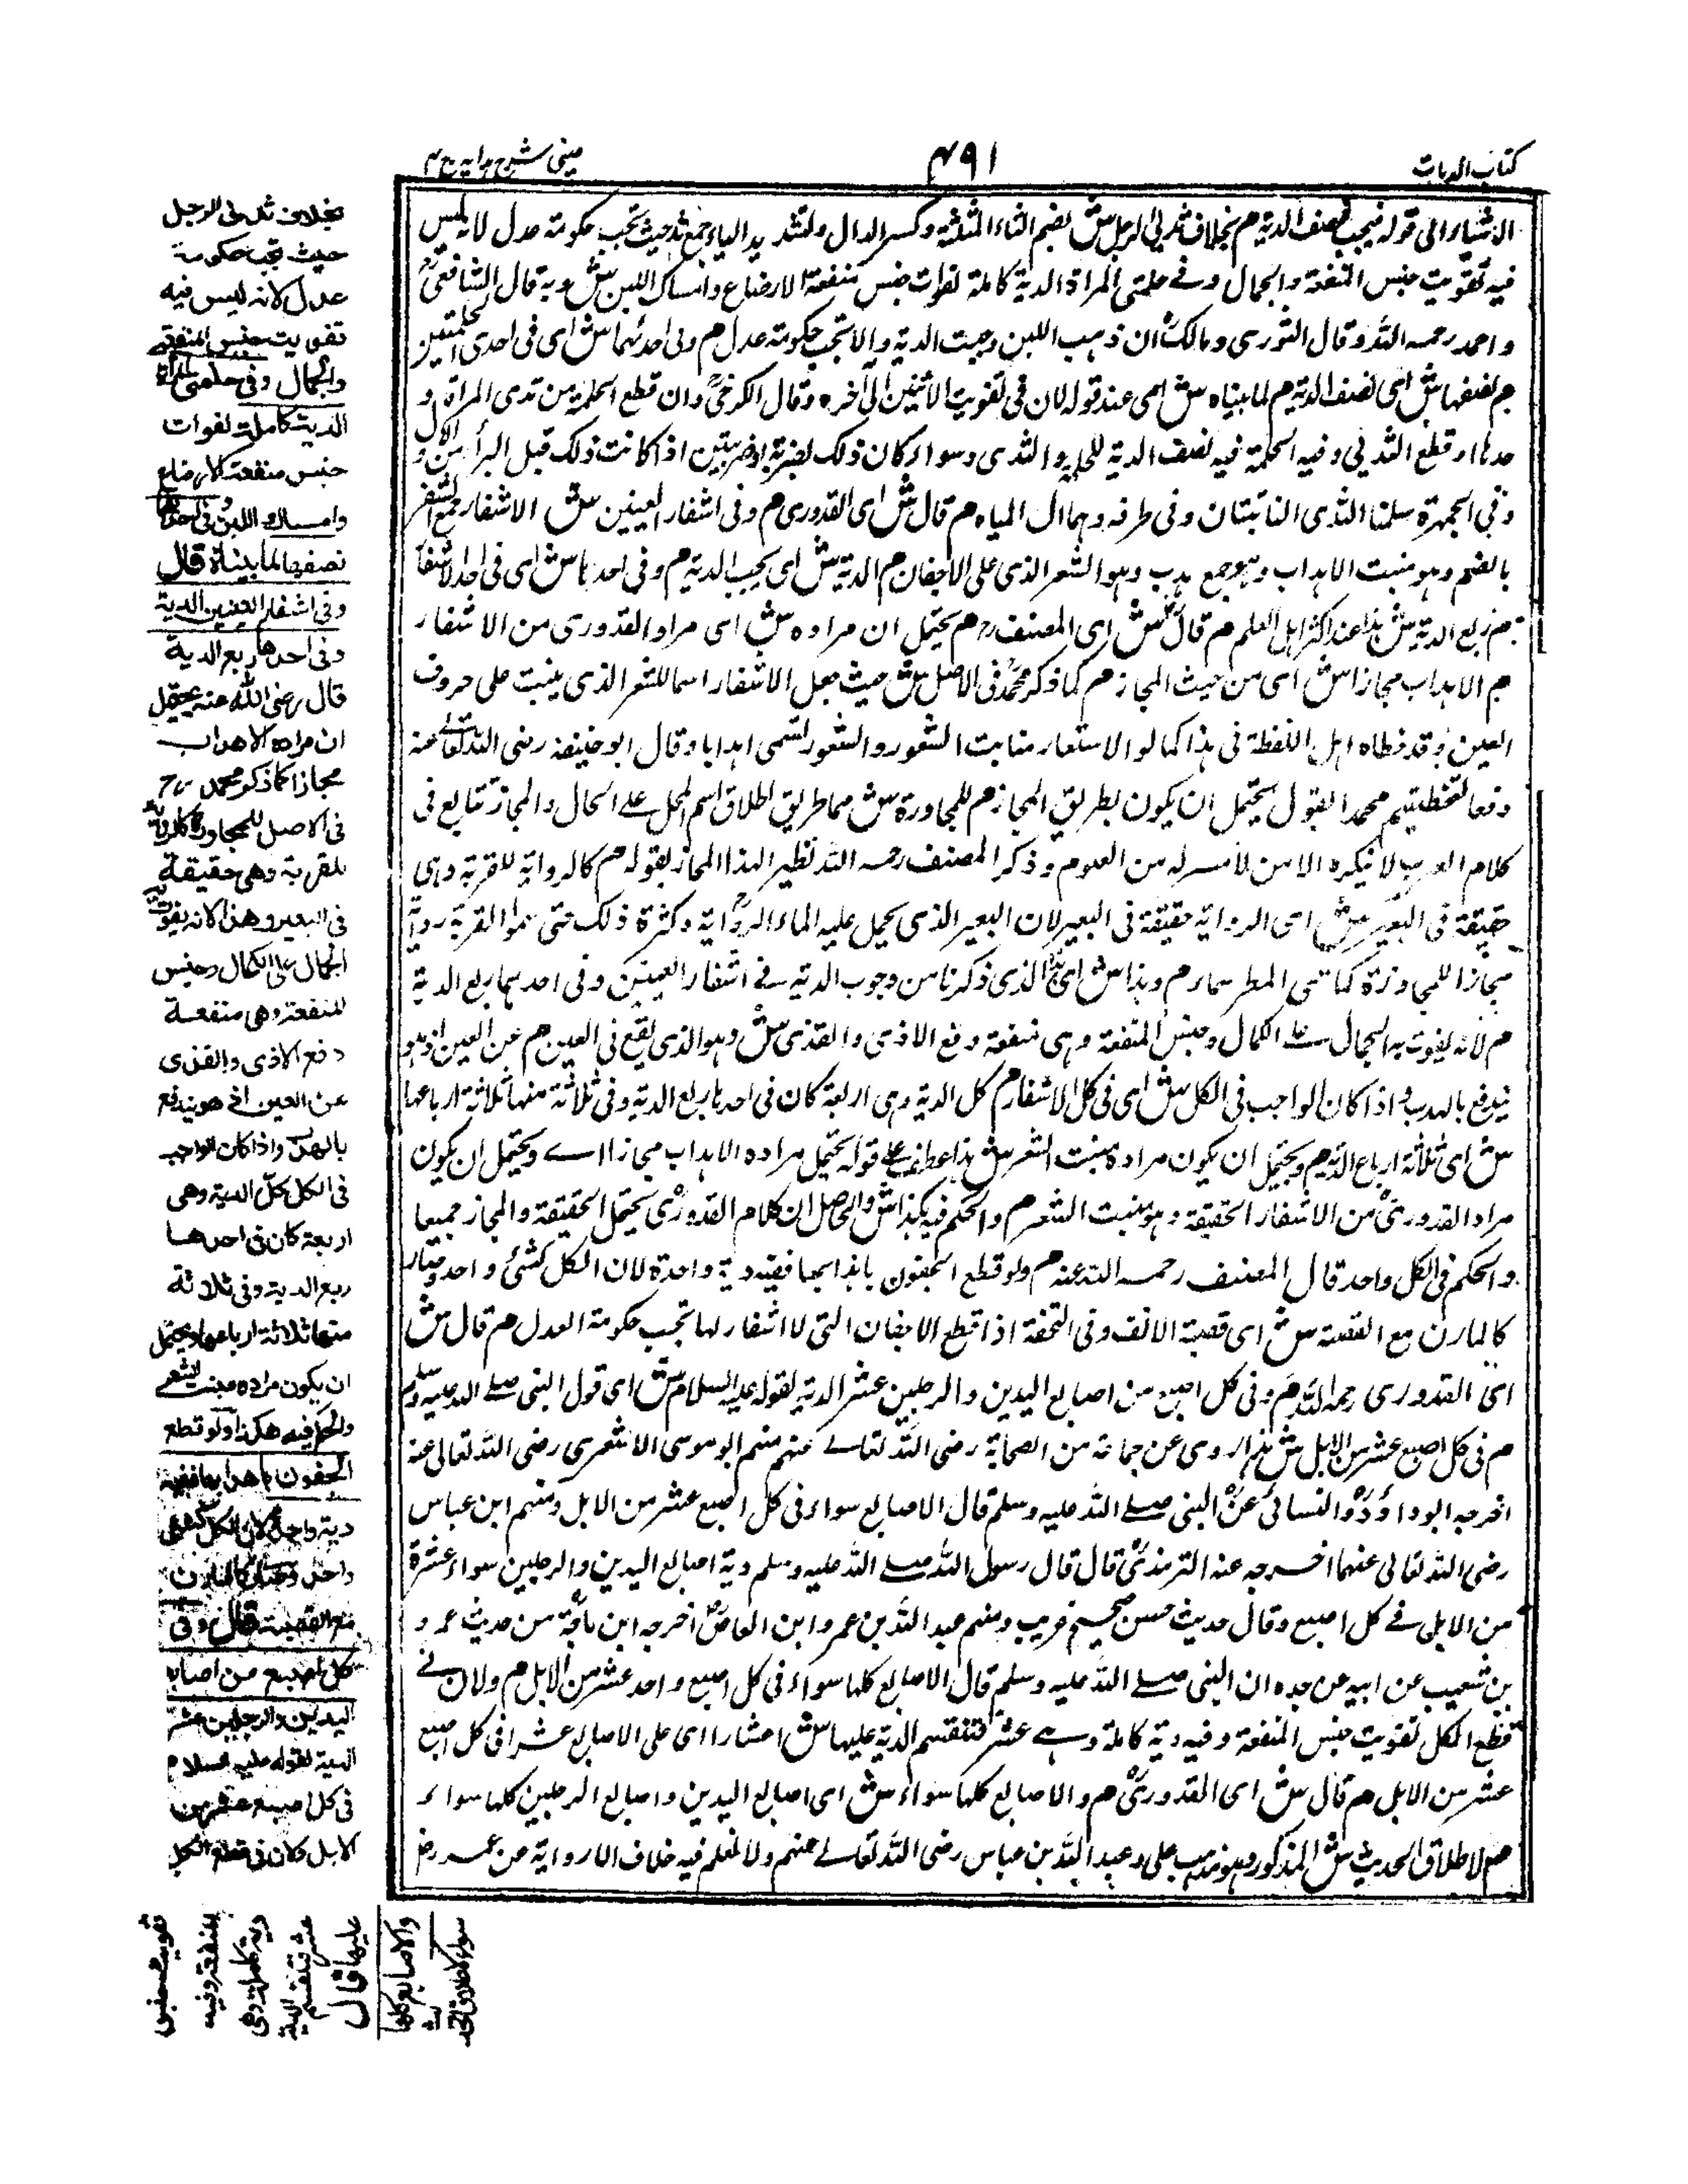 كتاب الديات
٤٩١
عينى شرح هدايه ج ٤
الاشياء الى قوله فيجب نصف الدية م بخلاف ثديي الرجل ش بضم الثاء المثلثة وكسر الدال وتشديد الياء جمع ثدى حيث تجب حكومة عدل لانه ليس
فيه تفويت جنس المنفعة والجمال وفي حلمتى المراة الدية كاملة لفوات جنس منفعة الارضاع وامساك اللبن ش وبه قال الشافعى
واحمد رحمه الله وقال الثورى ومالك ان ذهب اللبن وجبت الدية والا تجب حكومة عدل م وفى احدهما ش اى فى احدى الحلمتين
م نصفها ش اى نصف الدية م لما بيناه ش اى عند قوله لان فى تفويت الاثنين الى آخره وقال الكرخى وان قطع الحلمة من ثدى المراة و
حدها او قطع الثدي وفيه الحلمة فيه نصف الدية للحلمة والثدى وسواء كان ذلك بضربة او ضربتين اذا كانت ذلك قبل البرأ من الاول
وفي الجمهرة حلمتا الثدى الناتئتان وفى طرفه وهما ال المياه م قال ش اى القدورى م وفى اشفار العينين ش الاشفار جمع الشفر
بالضم وهو منبت الاهداب وهو جمع هدب وهو الشعر الذى على الاجفان م الدية ش اى تجب الدية م وفى احدها ش اى فى احد الاشفار
م ربع الدية ش هذا عند اكثر اهل العلم م قال ش اى المصنف رح م يحتمل ان مراده ش اى مراد القدورى من الاشفار
م الاهداب مجازا ش اى من حيث المجاز م كما ذكر محمد فى الاصل ش حيث جعل الاشفار اسما للشعر الذى ينبت على حروف
العين وقد خطاه اهل اللفظة فى هذا كما لو الاستعار منابت الشعور والشعور تسمى اهدابا وقال ابو حنيفة رضى الله تعالى عنه
دفعا لتخطئتهم محمدا بقول يحتمل ان يكون بطريق المجاز م للمجاورة ش مما طريق اطلاق اسم المحل على الحال والمجاز شايع فى
كلام العرب لا ينكره الا من لا مسرله من العلوم وذكر المصنف رحمه الله نظير الهذا المجاز بقوله م كالرواية للقربة وهى
حقيقة فى البعير ش اى الرواية حقيقة فى البعير لان البعير الذى يحمل عليه الماء الرواية وكثرة ذلك حتى سموا القربة رواية
مجازا للمجاورة كما تسمى المطر سما م وهذا ش اى هذا الذى ذكرنا من وجوب الدية في اشفار العينين وفى احدهما ربع الدية
م لانه يفوت به الجمال على الكمال وجنس المنفعة وهى منفعة دفع الاذى والقذى ش وهو الذى يقع فى العين م عن العين اذ هو
يندفع بالهدب واذا كان الواجب فى الكل ش اى فى كل الاشفار م كل الدية وهى اربعة كان فى احدها ربع الدية وفى ثلاثة منها ثلاثة ارباعها
ش اى ثلاثة ارباع الدية م ويحتمل ان يكون مراده منبت الشعر ش هذا عطف على قوله يحتمل مراده الاهداب مجازا اى ويحتمل ان يكون
مراد القدورى من الاشفار الحقيقة وهو منبت الشعر م والحكم فيه هكذا ش والحاصل ان كلام القدورى يحتمل الحقيقة والمجاز جميعا
والحكم فى الكل واحد قال المصنف رحمه الله عنه م ولو قطع الجفون باهدابها ففيه دية واحدة لان الكل كشئ واحد وصار
كالمارن مع القصبة ش اى قصبة الانف وفى التحفة اذا قطع الاجفان التى لا اشفار لها تجب حكومة العدل م قال ش
اى القدورى رحمه الله م وفى كل اصبع من اصابع اليدين والرجلين عشر الدية لقوله عليه السلام ش اى قول النبى صلے الله عليه وسلم
م فى كل اصبع عشر من الابل ش هذا روى عن جماعة من الصحابة رضى الله تعالے عنهم منهم ابو موسى الاشعرى رضى الله تعالى عنه
اخرجه ابو داؤد والنسائى عن النبى صلے الله عليه وسلم قال الاصابع سواء فى كل اصبع عشر من الابل ومنهم ابن عباس
رضى الله تعالى عنهما اخرجه عنه الترمذى قال قال رسول الله صلے الله عليه وسلم دية اصابع اليدين والرجلين سواء عشرة
من الابل في كل اصبع وقال حديث حسن صحيح غريب ومنهم عبد الله بن عمر وابن العاص اخرجه ابن ماجة من حديث عمرو
بن شعيب عن ابيه عن جده ان النبى صلے الله عليه وسلم قال الاصابع كلها سواء فى كل اصبع واحد عشر من الابل م ولان في
قطع الكل تفويت جنس المنفعة وفيه دية كاملة وهے عشر فتنقسم الدية عليها ش اعشارا اى على الاصابع عشرا فى كل اصبع
عشر من الابل م قال ش اى القدورى م والاصابع كلها سواء ش اى اصابع اليدين واصابع الرجلين كلها سواء
م لاطلاق الحديث ش المذكور وهو مذهب على وعبد الله بن عباس رضى الله تعالے عنهم ولا نعلم فيه خلاف الا رواية عن عمر رض
بخلاف ثديى الرجل
حيث تجب حكومة
عدل لانه ليس فيه
تفويت جنس المنفعة
والجمال وفى حلمتى المراة
الدية كاملة لفوات
جنس منفعة الارضاع
وامساك اللبن وفى احدهما
نصفها لما بيناه قال
وفى اشفار العينين الدية
وفى احدها ربع الدية
قال رضى الله عنه يحتمل
ان مراده الاهداب
مجازا كما ذكر محمد رح
فى الاصل للمجاورة كالرواية
للقربة وهى حقيقة
فى البعير وهذا لانه يفوت به
الجمال على الكمال وجنس
المنفعة وهى منفعة
دفع الاذى والقذى
عن العين اذ هو يندفع
بالهدب واذا كان الواجب
فى الكل كل الدية وهى
اربعة كان فى احدها
ربع الدية وفى ثلاثة
منها ثلاثة ارباعها ويحتمل
ان يكون مراده منبت الشعر
والحكم فيه هكذا ولو قطع
الجفون باهدابها ففيه
دية واحدة لان الكل كشئ
واحد وصار كالمارن
مع القصبة قال وفى
كل اصبع من اصابع
اليدين والرجلين عشر
الدية لقوله عليه السلام
فى كل اصبع عشر من
الابل ولان فى قطع الكل
تفويت جنس
المنفعة وفيه
دية كاملة وهى
عشر فتنقسم الدية
عليها قال
والاصابع كلها
سواء لاطلاق الحديث